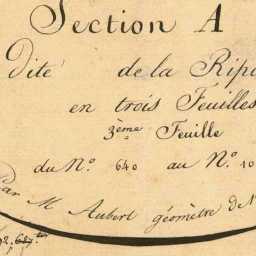 Section A
Dité de la Ripe
en trois Feuilles
3ème Feuille
du N.° 640 au N.° 10
Par M Aubert géomètre de 1